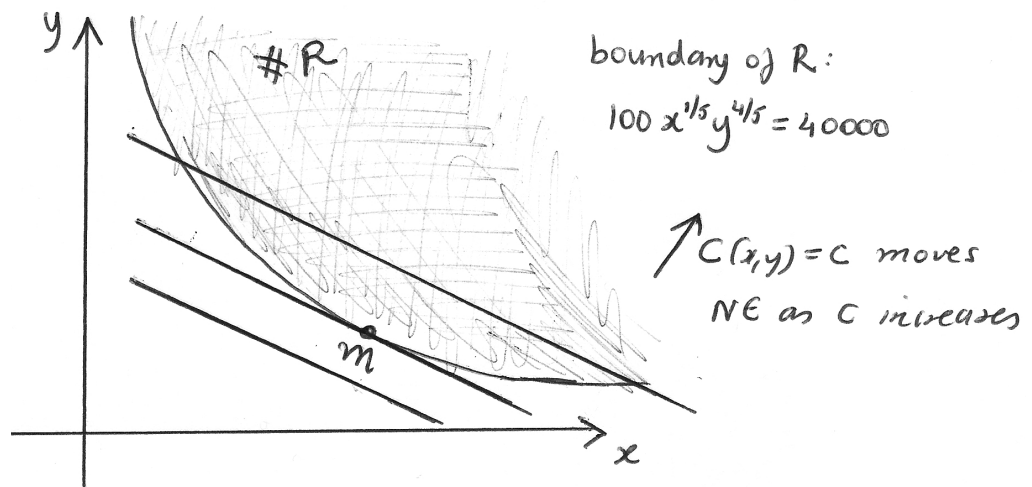 y
# R
boundary of R:
100 x^{1/5} y^{4/5} = 40000
C(x,y) = C moves
NE as C increases
m
x